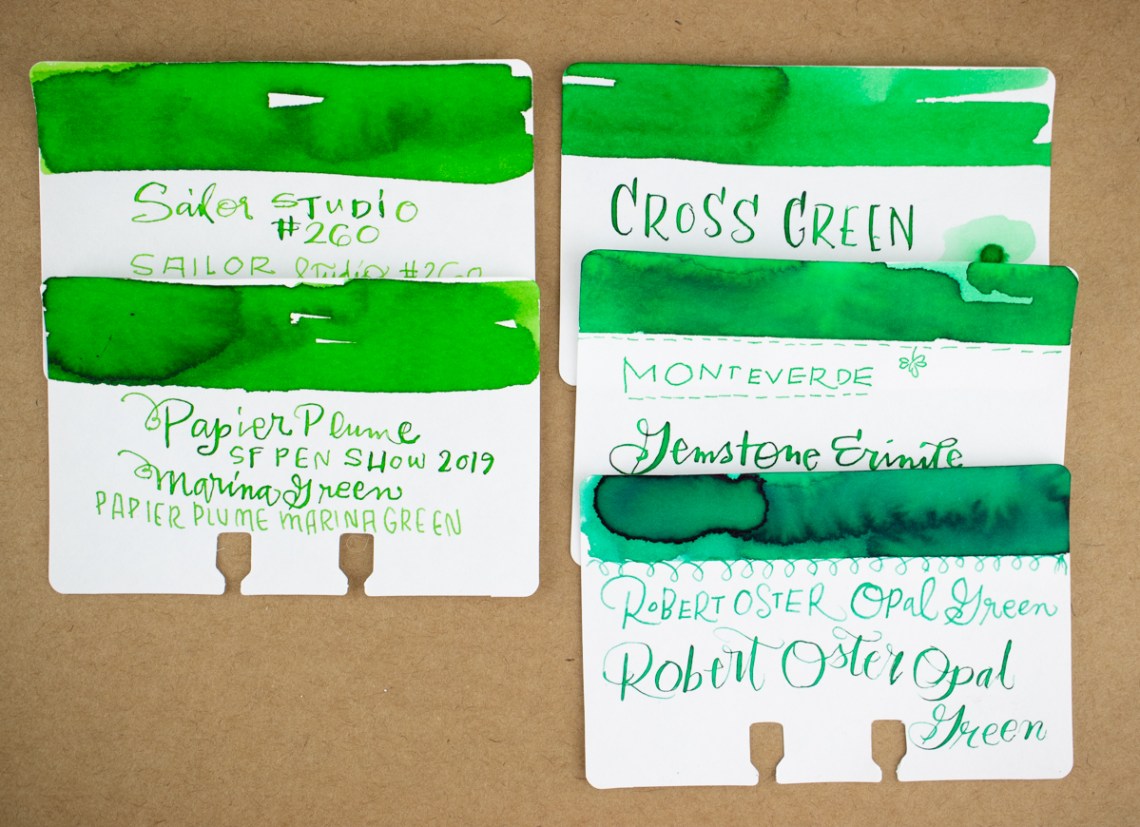 Sailor STUDIO
#260
SAILOR Studio #260
Papier Plume
SF PEN SHOW 2019
Marina Green
PAPIER PLUME MARINA GREEN
CROSS GREEN
MONTEVERDE
Gemstone Erinite
ROBERT OSTER Opal Green
Robert Oster Opal
Green